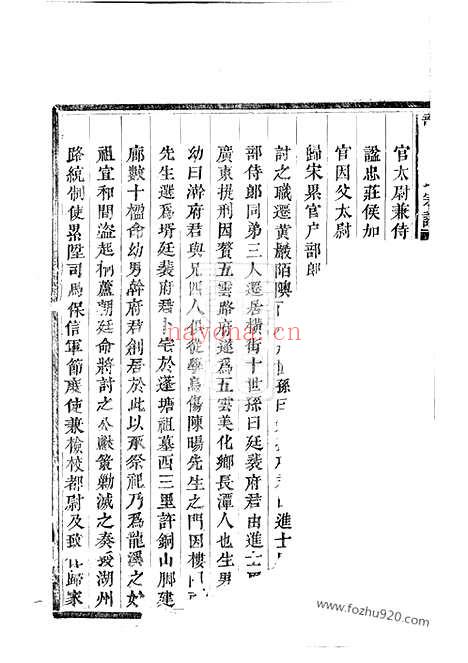 官太尉兼侍
諡忠莊侯加
官因父太尉
歸宋累官户部郎
討之職遷黄巖陌隩 世孫曰 進士
部侍郎同弟三人遷居橫街十世孫曰廷裝府君由進士
廣東提刑因贅五雲路府遂爲五雲美化鄉長潭人也生男
幼曰澣府君與兄四人 從學烏傷陳暘先生之門因樓
先生選爲壻廷裝府君 宅於蓬塘祖墓西三里許銅山脚建
廊數十楹命幼男幹府君創居於此以承祭祀乃爲龍溪之始
祖宜和間盜起桐蘆朝廷命將討之公獻策勦滅之奏授湖州
路統制使累陞司馬保信軍節度使兼檢校都尉及致 歸家
nayona.cn
www.fozhu920.com